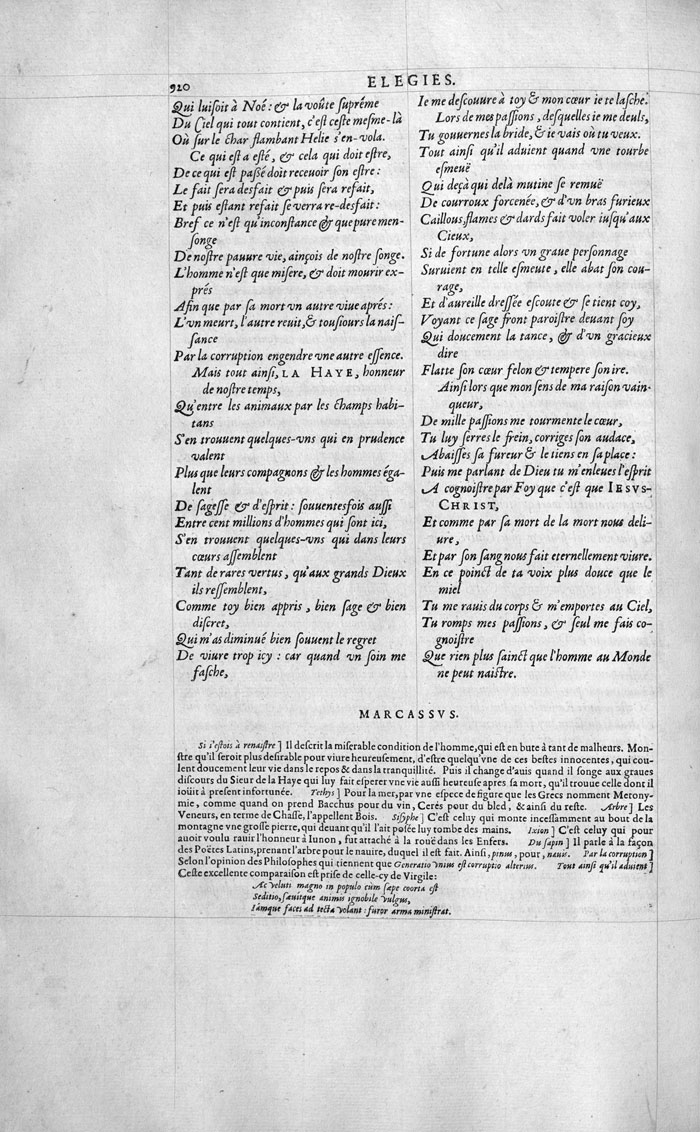 920
ELEGIES.
Qui luisoit à Noé: & la voûte supréme
Du Ciel qui tout contient, c'est ceste mesme-là
Où sur le char flambant Helie s'en-vola.
Ce qui est a esté, & cela qui doit estre,
De ce qui est passé doit receuoir son estre:
Le fait sera desfait & puis sera refait,
Et puis estant refait se verra re-desfait:
Bref ce n'est qu'inconstance & que pure men-
songe
De nostre pauure vie, ainçois de nostre songe.
L'homme n'est que misere, & doit mourir ex-
prés
Afin que par sa mort vn autre viue aprés:
L'vn meurt, l'autre reuit, & tousiours la nais-
sance
Par la corruption engendre vne autre essence.
Mais tout ainsi, LA HAYE, honneur
de nostre temps,
Qu'entre les animaux par les champs habi-
tans
S'en trouuent quelques-vns qui en prudence
valent
Plus que leurs compagnons & les hommes éga-
lent
De sagesse & d'esprit: souuentesfois aussi
Entre cent millions d'hommes qui sont ici,
S'en trouuent quelques-vns qui dans leurs
cœurs assemblent
Tant de rares vertus, qu'aux grands Dieux
ils ressemblent,
Comme toy bien appris, bien sage & bien
discret,
Qui m'as diminué bien souuent le regret
De viure trop icy: car quand vn soin me
fasche,
Ie me descouure à toy & mon cœur ie te lasche.
Lors de mes passions, desquelles ie me deuls,
Tu gouuernes la bride, & ie vais où tu veux.
Tout ainsi qu'il aduient quand vne tourbe
esmeuë
Qui deçà qui delà mutine se remuë
De courroux forcenée, & d'vn bras furieux
Caillous, flames & dards fait voler iusqu'aux
Cieux,
Si de fortune alors vn graue personnage
Suruient en telle esmeute, elle abat son cou-
rage,
Et d'aureille dressée escoute & se tient coy,
Voyant ce sage front paroistre deuant soy
Qui doucement la tance, & d'vn gracieux
dire
Flatte son cœur felon & tempere son ire.
Ainsi lors que mon sens de ma raison vain-
queur,
De mille passions me tourmente le cœur,
Tu luy serres le frein, corriges son audace,
Abaisses sa fureur & le tiens en sa place:
Puis me parlant de Dieu tu m'enleues l'esprit
A cognoistre par Foy que c'est que IESVS-
CHRIST,
Et comme par sa mort de la mort nous deli-
ure,
Et par son sang nous fait eternellement viure.
En ce poinct de ta voix plus douce que le
miel
Tu me rauis du corps & m'emportes au Ciel,
Tu romps mes passions, & seul me fais co-
gnoistre
Que rien plus sainct que l'homme au Monde
ne peut naistre.
MARCASSVS.
Si i'estois à renaistre] Il descrit la miserable condition de l'homme, qui est en bute à tant de malheurs. Mon-
stre qu'il seroit plus desirable pour viure heureusement, d'estre quelqu'vne de ces bestes innocentes, qui cou-
lent doucement leur vie dans le repos & dans la tranquillité. Puis il change d'auis quand il songe aux graues
discours du Sieur de la Haye qui luy fait esperer vne vie aussi heureuse apres sa mort, qu'il trouue celle dont il
ioüit à present infortunée. Tethys] Pour la mer, par vne espece de figure que les Grecs nomment Metony-
mie, comme quand on prend Bacchus pour du vin, Cerés pour du bled, & ainsi du reste. Arbre] Les
Veneurs, en terme de Chasse, l'appellent Bois. Sisyphe] C'est celuy qui monte incessamment au bout de la
montagne vne grosse pierre, qui deuant qu'il l'ait posée luy tombe des mains. Ixion] C'est celuy qui pour
auoit voulu rauir l'honneur à Iunon, fut attaché à la rouë dans les Enfers. Du sapin] Il parle à la façon
des Poëtes Latins, prenant l'arbre pour le nauire, duquel il est fait. Ainsi, pinus, pour, nauis. Par la corruption]
Selon l'opinion des Philosophes qui tiennent que Generatio vnius est corruptio alterius. Tout ainsi qu'il aduient]
Ceste excellente comparaison est prise de celle-cy de Virgile:
Ac veluti magno in populo cùm sæpe coorta est
Seditio, sæuitque animis ignobile vulgus,
Iámque faces ad tecta volant: furor arma ministrat.